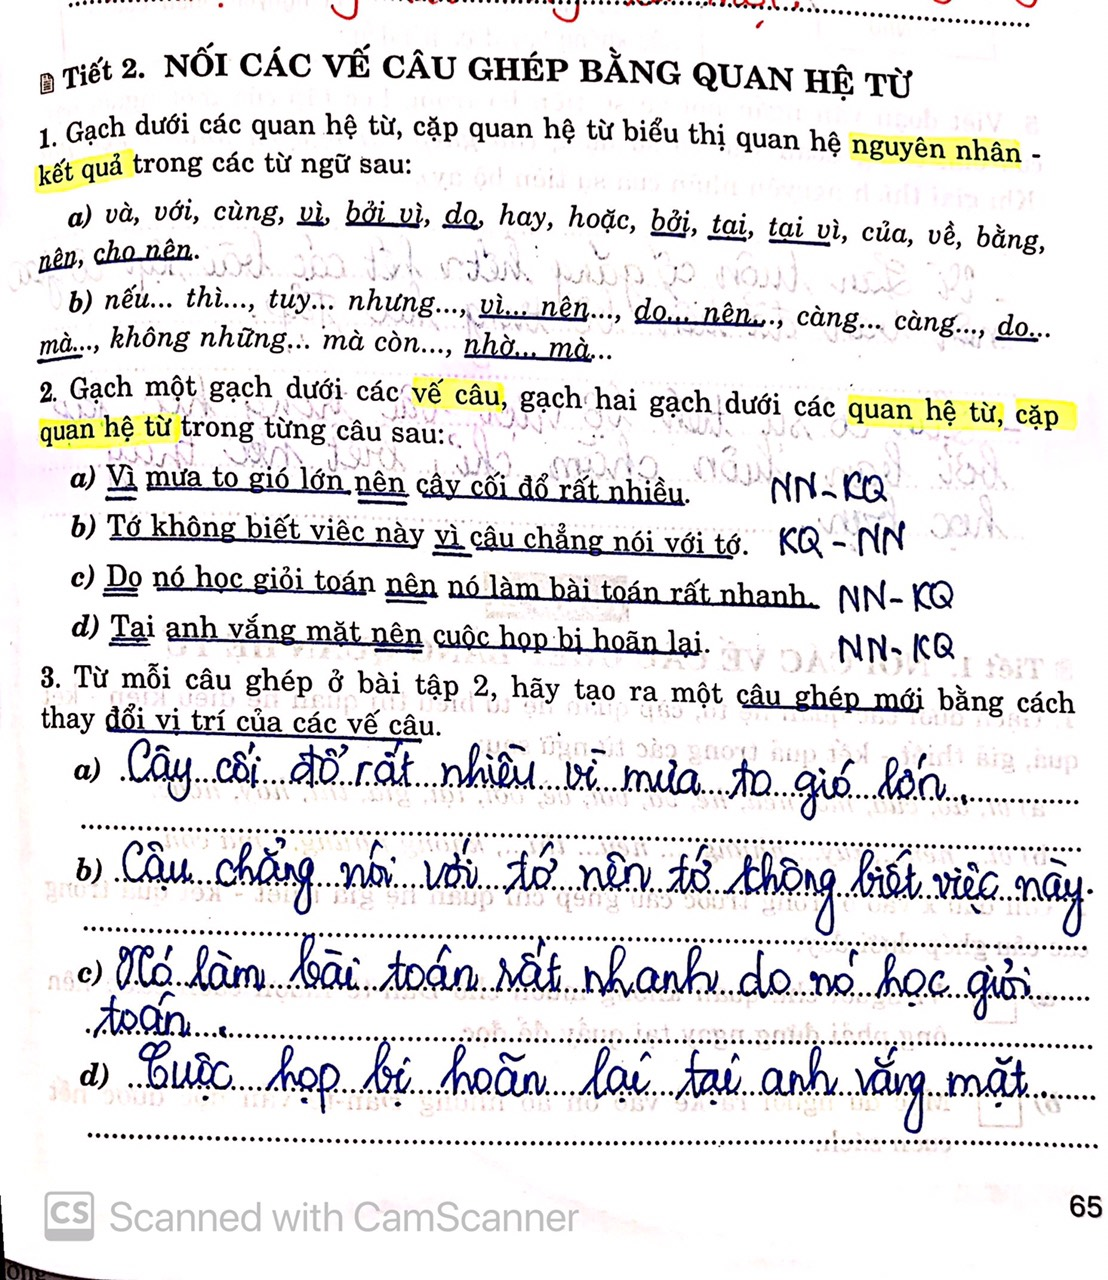 Tiết 2. NỐI CÁC VẾ CÂU GHÉP BẰNG QUAN HỆ TỪ
1. Gạch dưới các quan hệ từ, cặp quan hệ từ biểu thị quan hệ nguyên nhân -
kết quả trong các từ ngữ sau:
a) và, với, cùng, vì, bởi vì, do, hay, hoặc, bởi, tại, tại vì, của, về, bằng,
nên, cho nên.
b) nếu... thì..., tuy... nhưng..., vì... nên..., do... nên..., càng... càng..., do...
mà..., không những... mà còn..., nhờ... mà...
2. Gạch một gạch dưới các vế câu, gạch hai gạch dưới các quan hệ từ, cặp
quan hệ từ trong từng câu sau:
a) Vì mưa to gió lớn nên cây cối đổ rất nhiều. NN-KQ
b) Tớ không biết việc này vì cậu chẳng nói với tớ. KQ-NN
c) Do nó học giỏi toán nên nó làm bài toán rất nhanh. NN-KQ
d) Tại anh vắng mặt nên cuộc họp bị hoãn lại. NN-KQ
3. Từ mỗi câu ghép ở bài tập 2, hãy tạo ra một câu ghép mới bằng cách
thay đổi vị trí của các vế câu.
a) Cây cối đổ rất nhiều vì mưa to gió lớn.
b) Cậu chẳng nói với tớ nên tớ không biết việc này.
c) Nó làm bài toán rất nhanh do nó học giỏi
toán.
d) Cuộc họp bị hoãn lại tại anh vắng mặt
65
CS Scanned with CamScanner